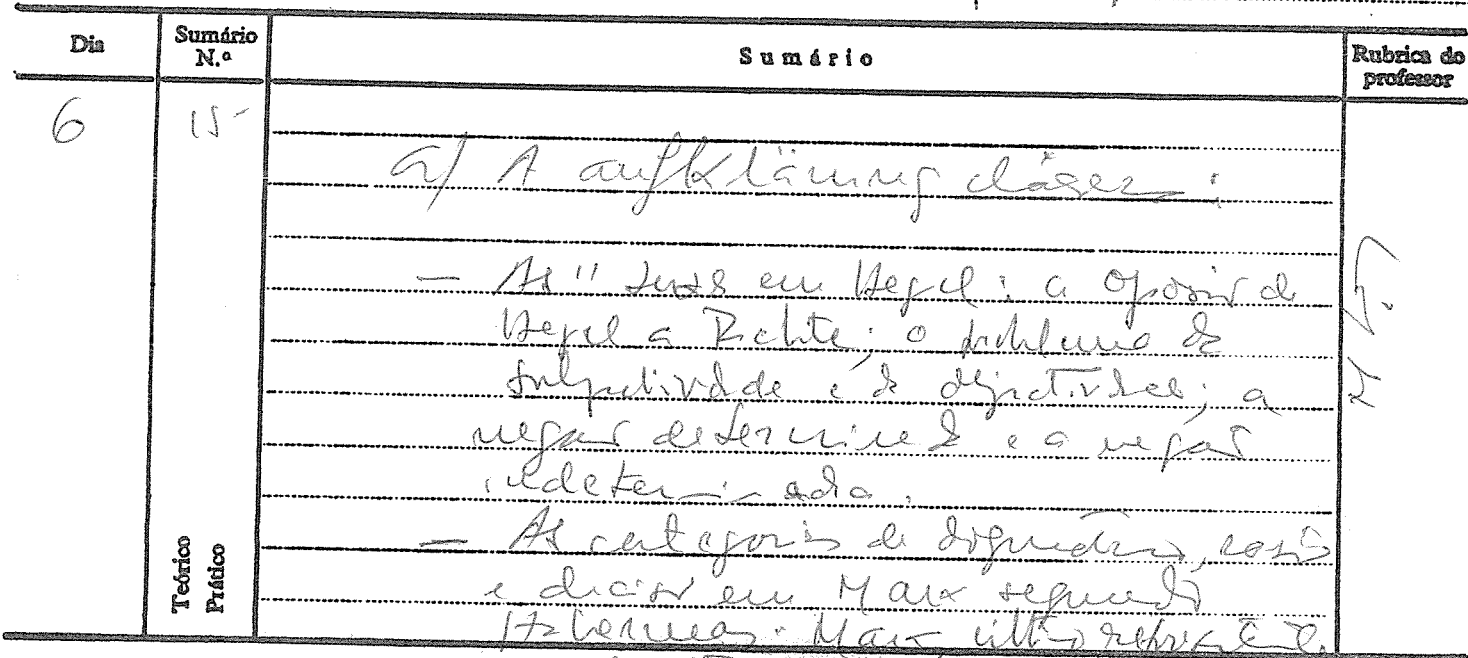 Dia
Sumário N.º
Sumário
Rubrica do professor
6
15
a) A aufklärung clássica:
— As " em Hegel: a oposição de
Hegel a Fichte; o problema da
subjetividade e da objectividade; a
negação determinada e a negação
indeterminada.
— As categorias de dogmatismo, razão
e decisão em Marx segundo
Habermas. Marx, último
Teórico
Prático